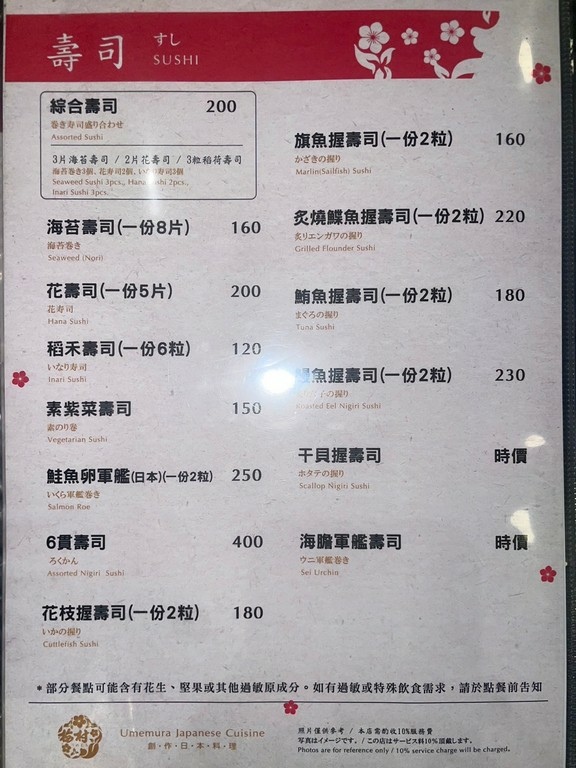 壽司 すし
SUSHI
綜合壽司 200
巻き寿司盛り合わせ
Assorted Sushi
3片海苔壽司 / 2片花壽司 / 3粒稻荷壽司
海苔巻き3個、花寿司2個、いなり寿司3個
Seaweed Sushi 3pcs., Hana Sushi 2pcs.,
Inari Sushi 3pcs.
海苔壽司(一份8片) 160
海苔巻き
Seaweed (Nori)
花壽司(一份5片) 200
花寿司
Hana Sushi
稻禾壽司(一份6粒) 120
いなり寿司
Inari Sushi
素紫菜壽司 150
素のり巻
Vegetarian Sushi
鮭魚卵軍艦(日本)(一份2粒) 250
いくら軍艦巻き
Salmon Roe
6貫壽司 400
ろくかん
Assorted Nigiri Sushi
花枝握壽司(一份2粒) 180
いかの握り
Cuttlefish Sushi
旗魚握壽司(一份2粒) 160
かざきの握り
Marlin(Sailfish) Sushi
炙燒鰈魚握壽司(一份2粒) 220
炙りエンガワの握り
Grilled Flounder Sushi
鮪魚握壽司(一份2粒) 180
まぐろの握り
Tuna Sushi
魚握壽司(一份2粒) 230
の握り
Roasted Eel Nigiri Sushi
干貝握壽司 時價
ホタテの握り
Scallop Nigiri Sushi
海膽軍艦壽司 時價
ウニ軍艦巻き
Sei Urchin
*部分餐點可能含有花生、堅果或其他過敏原成分。如有過敏或特殊飲食需求，請於點餐前告知
Umemura Japanese Cuisine
創・作・日・本・料・理
照片僅供參考 / 本店需酌收10%服務費
写真はイメージです。 / この店はサービス料10%頂戴します。
Photos are for reference only / 10% service charge will be charged.